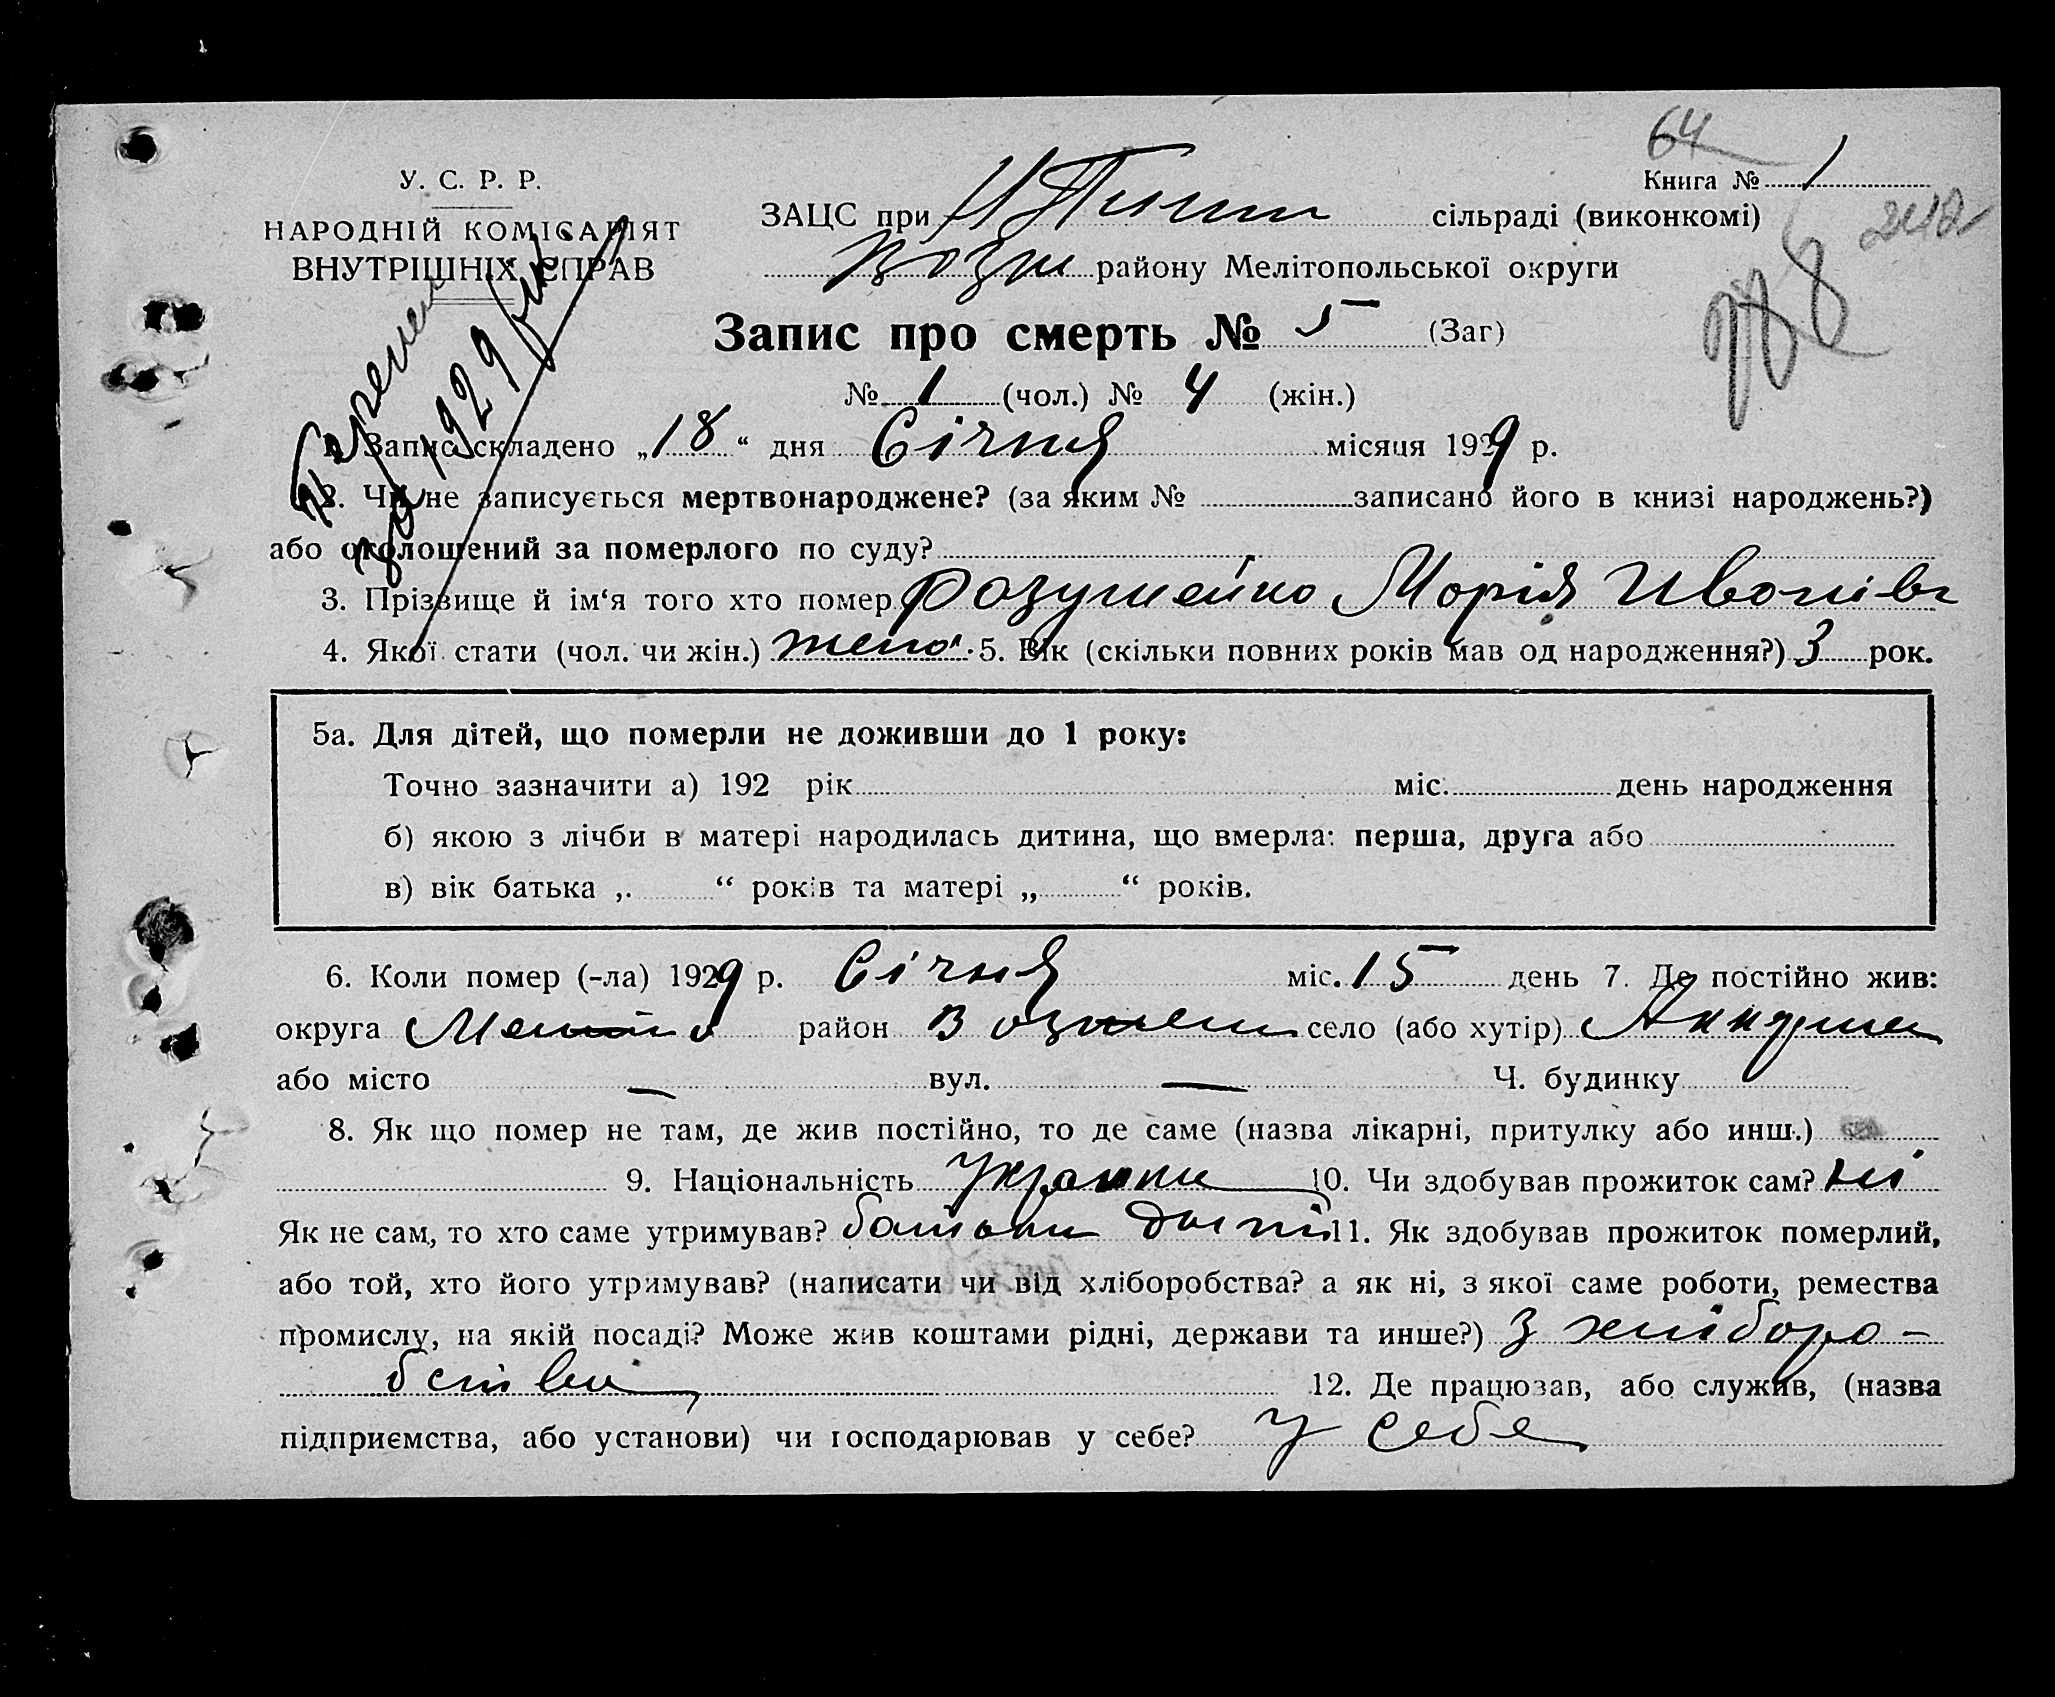 64
Книга № 1
У. С. Р. Р.
НАРОДНІЙ КОМІСАРІЯТ
ВНУТРІШНІХ СПРАВ
ЗАЦС при сільраді (виконкомі)
Возн району Мелітопольської округи
Запис про смерть № 5 (Заг)
№ 1 (чол.) № 4 (жін.)
за 1929 рік
1. Запис складено „18“ дня Січня місяця 1929 р.
2. Чи не записується мертвонароджене? (за яким № записано його в книзі народжень?)
або оголошений за померлого по суду?
3. Прізвище й ім‘я того хто помер Марія
4. Якої стати (чол. чи жін.) 5. Вік (скільки повних років мав од народження?) 3 рок.
5а. Для дітей, що померли не доживши до 1 року:
Точно зазначити а) 192 рік міс. день народження
б) якою з лічби в матері народилась дитина, що вмерла: перша, друга або
в) вік батька „ “ років та матері „ “ років.
6. Коли помер (-ла) 1929 р. Січня міс. 15 день 7. Де постійно жив:
округа район Вознесен село (або хутір)
або місто — вул. — Ч. будинку
8. Як що помер не там, де жив постійно, то де саме (назва лікарні, притулку або инш.)
9. Національність 10. Чи здобував прожиток сам? ні
Як не сам, то хто саме утримував? батьки 11. Як здобував прожиток померлий,
або той, хто його утримував? (написати чи від хліборобства? а як ні, з якої саме роботи, ремества
промислу, на якій посаді? Може жив коштами рідні, держави та инше?) З хліборо-
бства 12. Де працював, або служив, (назва
підприємства, або установи) чи господарював у себе? у себе